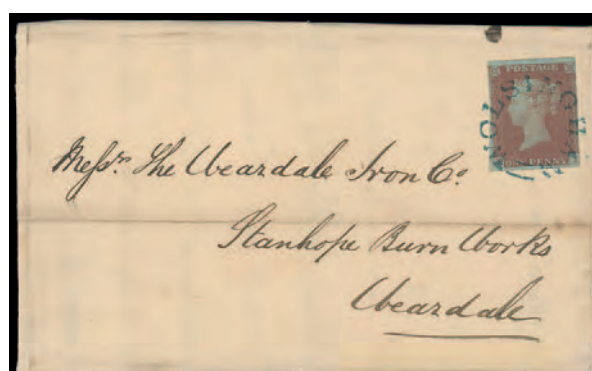 POSTAGE
WOLSINGHAM
ONE PENNY
Messrs. The Weardale Iron Co.
Stanhope Burn Works
Weardale